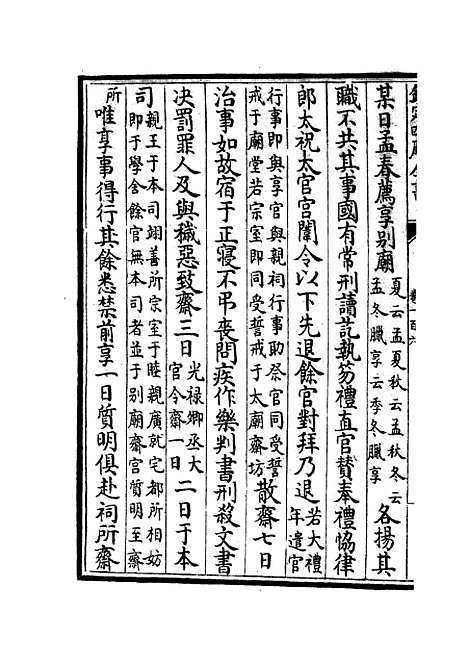 欽定四庫全書
卷一百六
某日孟春薦享别廟夏云孟夏秋云孟秋冬云孟冬臘享云季冬臘享各揚其
職不共其事國有常刑讀訖執笏禮直官贊奉禮協律
郎太祝太官宫闈令以下先退餘官對拜乃退若大禮年遣官
行事即與享官與親祠行事助祭官同受誓戒于廟堂若宗室即同受誓戒于太廟齋坊散齋七日
治事如故宿于正寢不弔喪問疾作樂判書刑殺文書
决罰罪人及與穢惡致齋三日光禄卿丞大官令齋一日二日于本
司親王于本司翊善所宗室于睦親廣就宅都所相妨即于學舍餘官無本司者並于别廟齋宫質明至齋
所唯享事得行其餘悉禁前享一日質明俱赴祠所齋